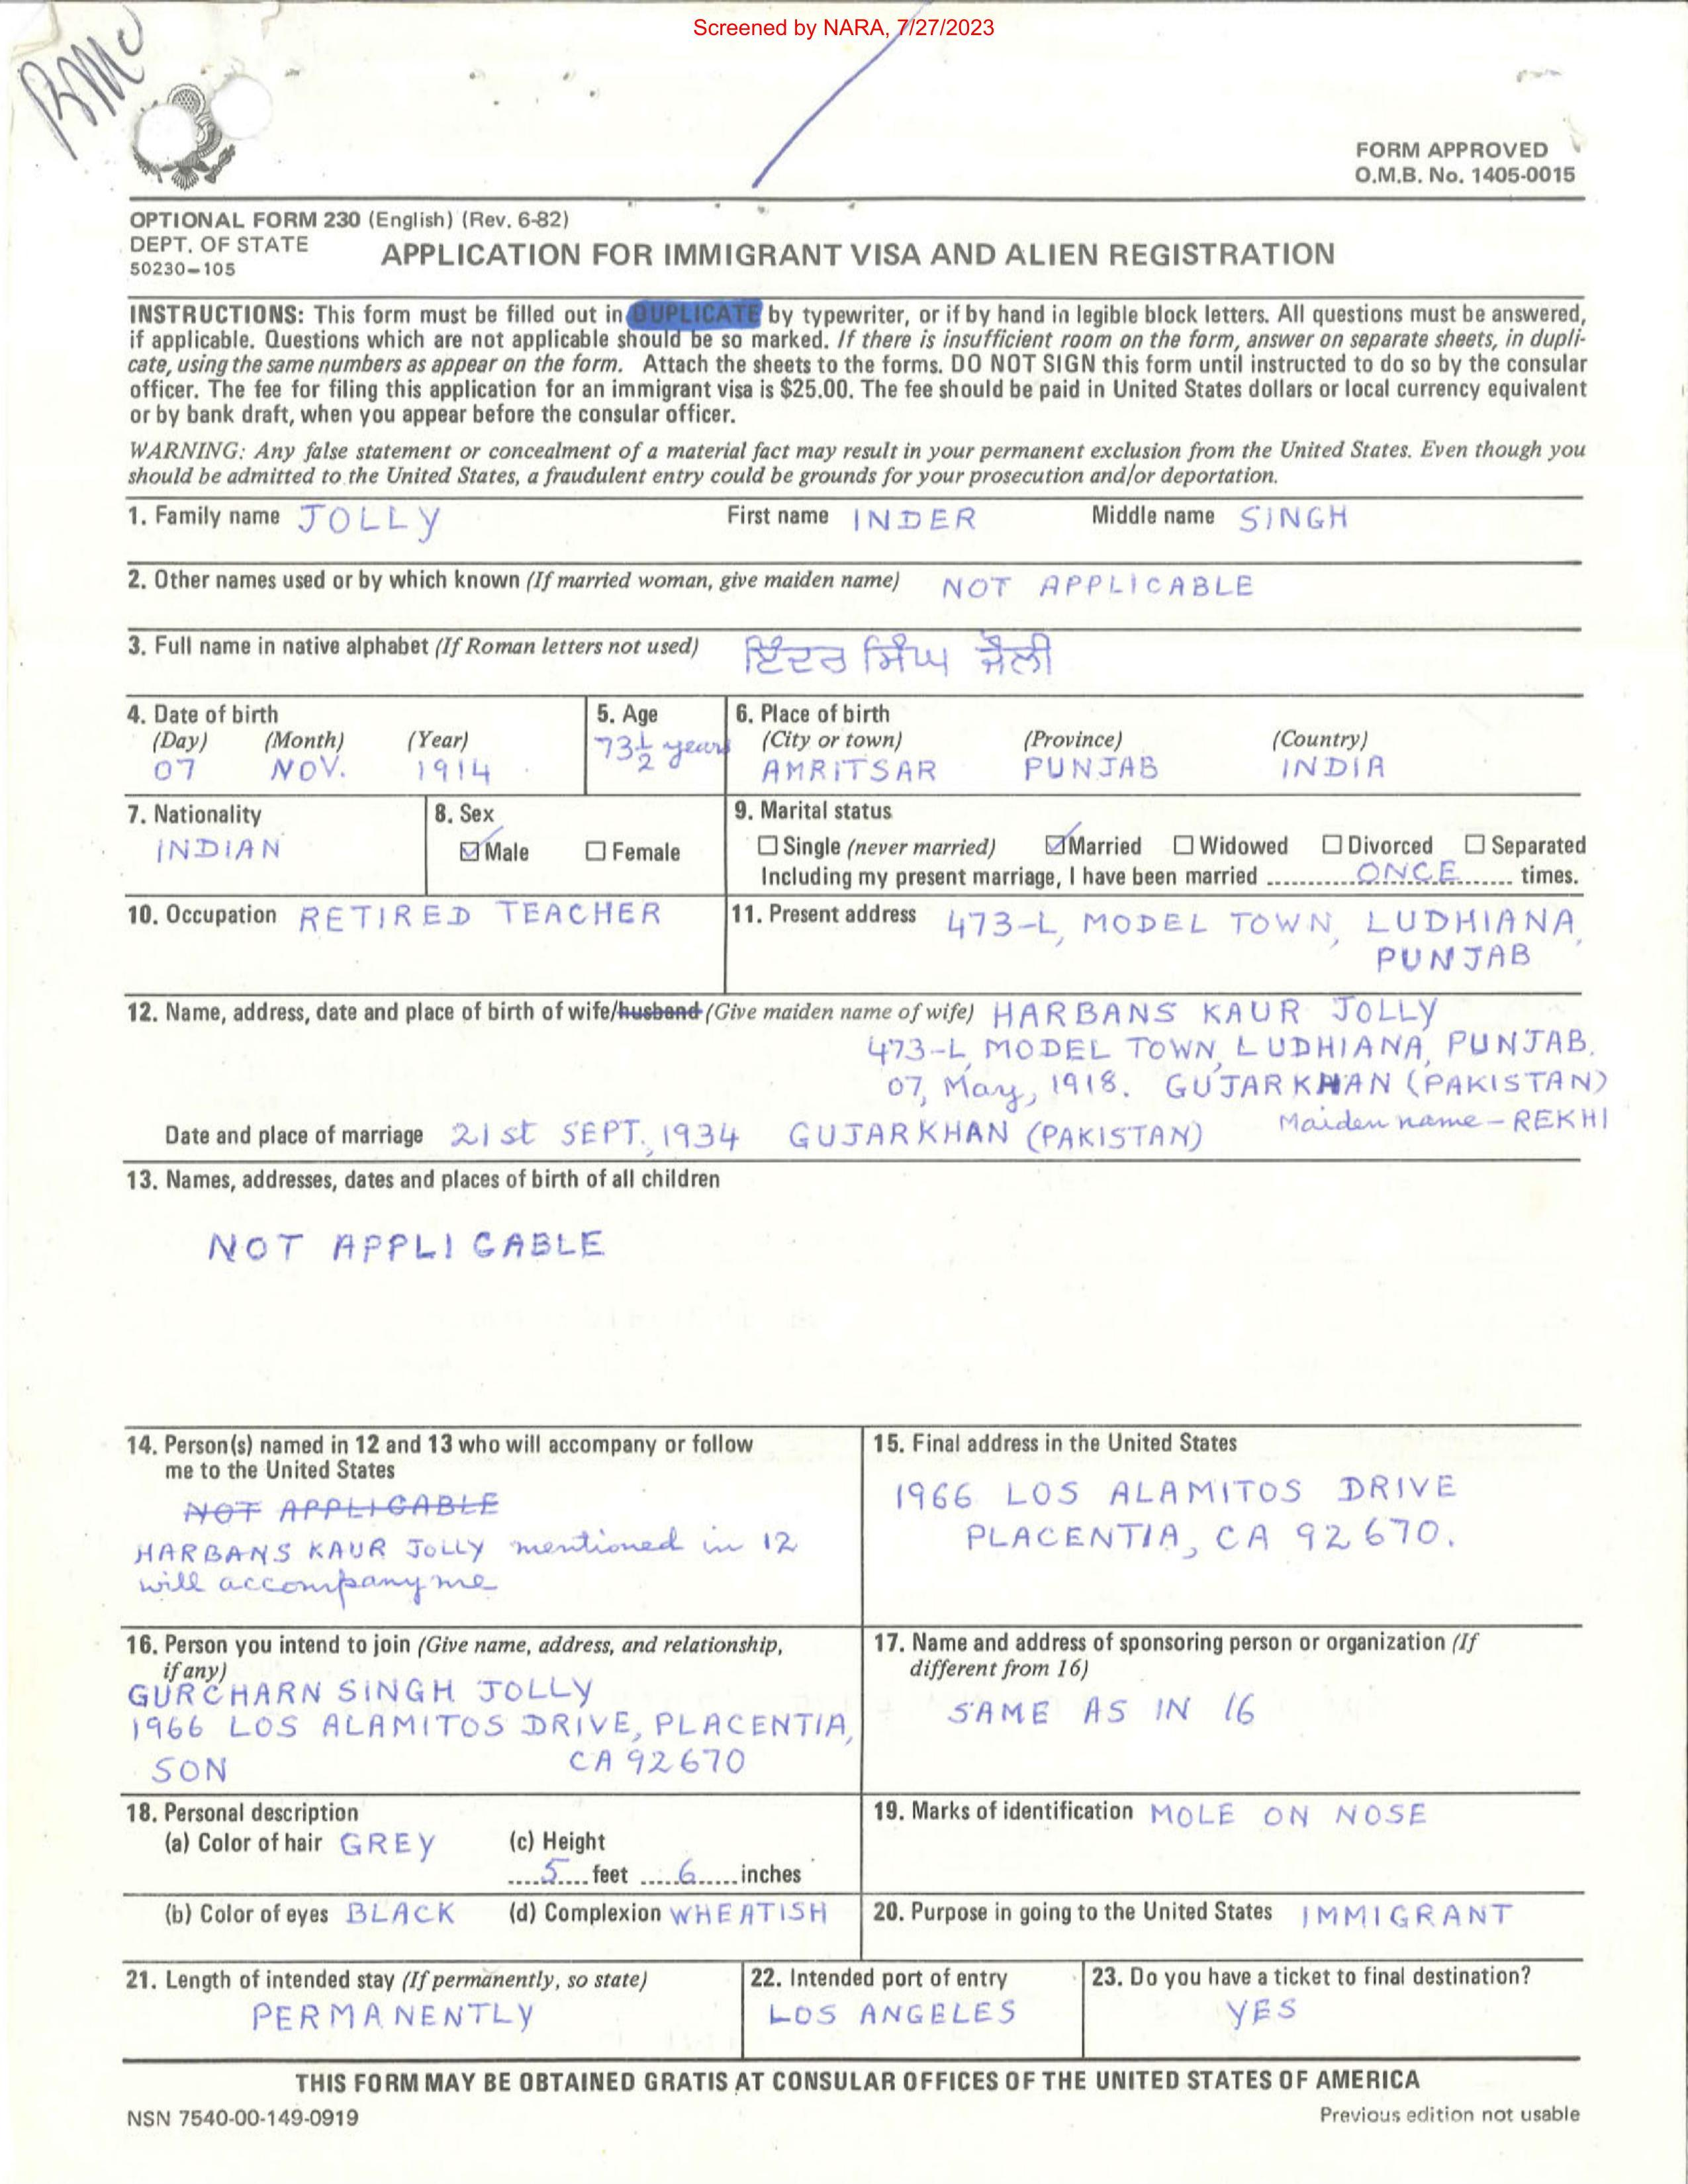 Screened by NARA, 7/27/2023
BMU
FORM APPROVED
O.M.B. No. 1405-0015
OPTIONAL FORM 230 (English) (Rev. 6-82)
DEPT. OF STATE
50230-105
APPLICATION FOR IMMIGRANT VISA AND ALIEN REGISTRATION
INSTRUCTIONS: This form must be filled out in DUPLICATE by typewriter, or if by hand in legible block letters. All questions must be answered,
if applicable. Questions which are not applicable should be so marked. If there is insufficient room on the form, answer on separate sheets, in dupli-
cate, using the same numbers as appear on the form. Attach the sheets to the forms. DO NOT SIGN this form until instructed to do so by the consular
officer. The fee for filing this application for an immigrant visa is $25.00. The fee should be paid in United States dollars or local currency equivalent
or by bank draft, when you appear before the consular officer.
WARNING: Any false statement or concealment of a material fact may result in your permanent exclusion from the United States. Even though you
should be admitted to the United States, a fraudulent entry could be grounds for your prosecution and/or deportation.
1. Family name JOLLY First name INDER Middle name SINGH
2. Other names used or by which known (If married woman, give maiden name) NOT APPLICABLE
3. Full name in native alphabet (If Roman letters not used) ਇੰਦਰ ਸਿੰਘ ਜੌਲੀ
4. Date of birth
(Day) (Month) (Year)
07 NOV. 1914
5. Age
73½ years
6. Place of birth
(City or town) (Province) (Country)
AMRITSAR PUNJAB INDIA
7. Nationality
INDIAN
8. Sex
☑ Male ☐ Female
9. Marital status
☐ Single (never married) ☑ Married ☐ Widowed ☐ Divorced ☐ Separated
Including my present marriage, I have been married ONCE times.
10. Occupation RETIRED TEACHER
11. Present address 473-L, MODEL TOWN, LUDHIANA,
PUNJAB
12. Name, address, date and place of birth of wife/husband (Give maiden name of wife) HARBANS KAUR JOLLY
473-L, MODEL TOWN, LUDHIANA, PUNJAB.
07, May, 1918. GUJARKHAN (PAKISTAN)
Maiden name - REKHI
Date and place of marriage 21st SEPT., 1934 GUJARKHAN (PAKISTAN)
13. Names, addresses, dates and places of birth of all children
NOT APPLICABLE
14. Person(s) named in 12 and 13 who will accompany or follow
me to the United States
NOT APPLICABLE
HARBANS KAUR JOLLY mentioned in 12
will accompany me
15. Final address in the United States
1966 LOS ALAMITOS DRIVE
PLACENTIA, CA 92670.
16. Person you intend to join (Give name, address, and relationship,
if any)
GURCHARN SINGH JOLLY
1966 LOS ALAMITOS DRIVE, PLACENTIA,
SON CA 92670
17. Name and address of sponsoring person or organization (If
different from 16)
SAME AS IN 16
18. Personal description
(a) Color of hair GREY (c) Height
5 feet 6 inches
(b) Color of eyes BLACK (d) Complexion WHEATISH
19. Marks of identification MOLE ON NOSE
20. Purpose in going to the United States IMMIGRANT
21. Length of intended stay (If permanently, so state)
PERMANENTLY
22. Intended port of entry
LOS ANGELES
23. Do you have a ticket to final destination?
YES
THIS FORM MAY BE OBTAINED GRATIS AT CONSULAR OFFICES OF THE UNITED STATES OF AMERICA
NSN 7540-00-149-0919
Previous edition not usable